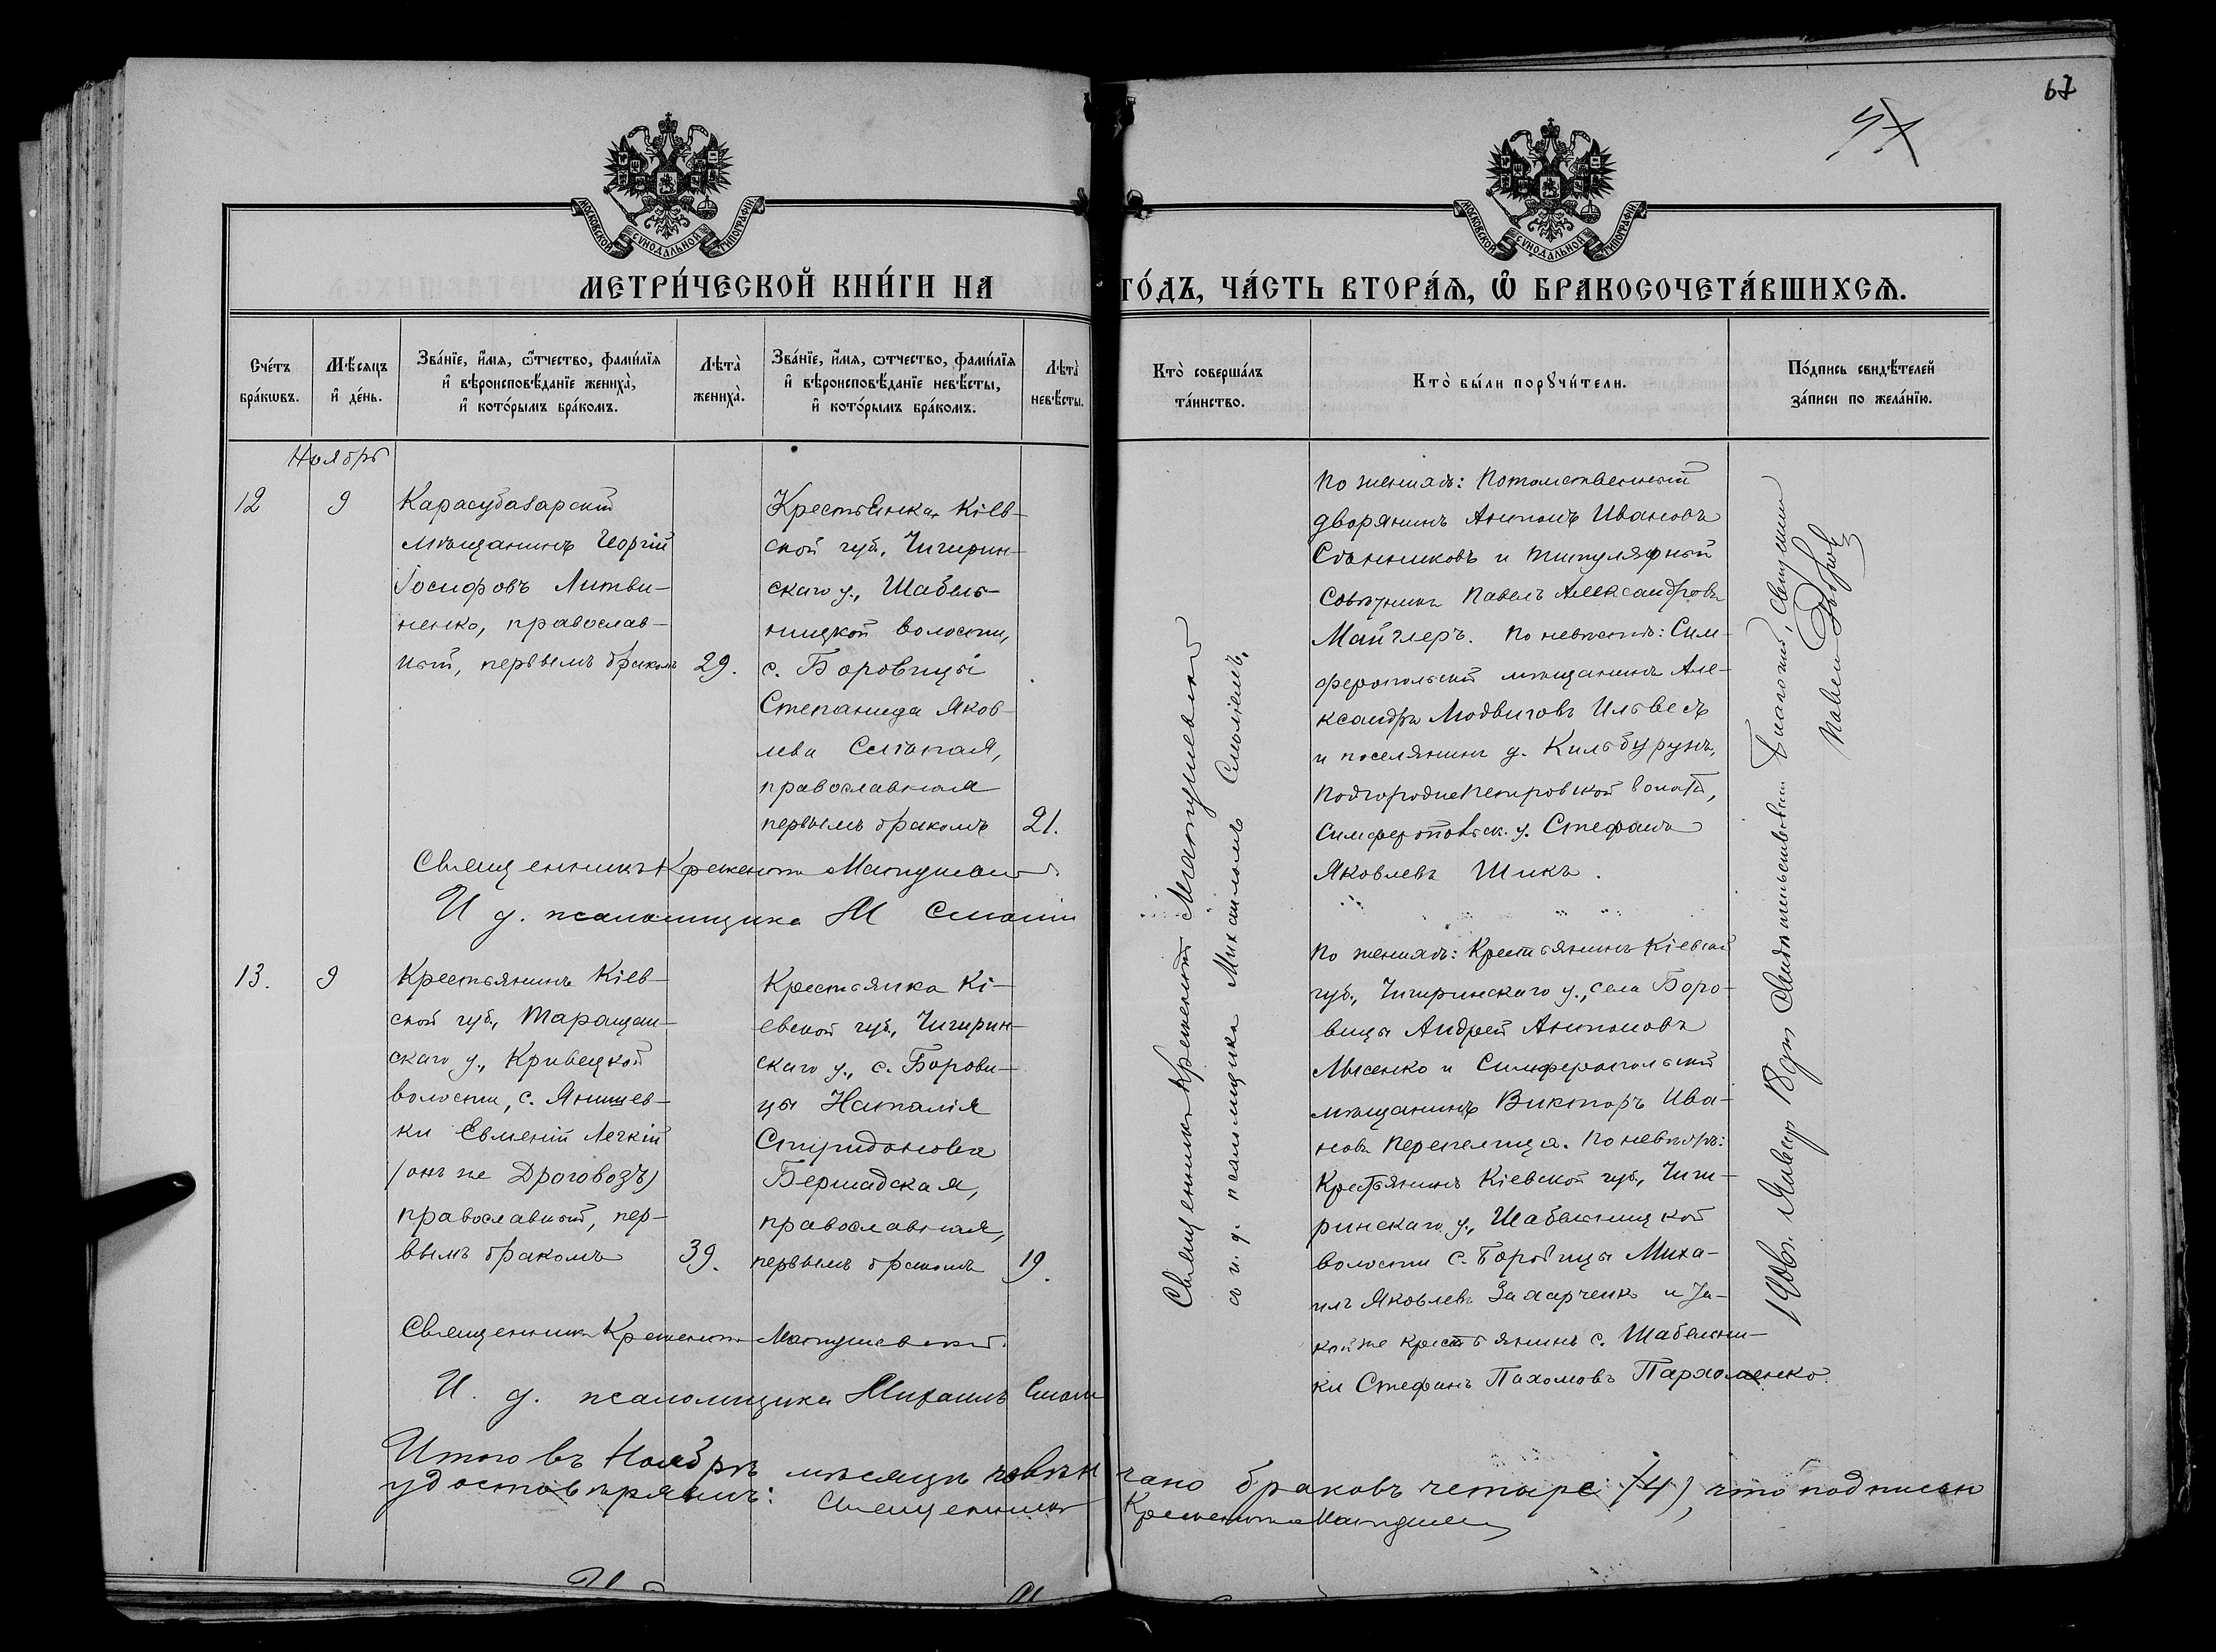 67
МОСКОВСКОЙ СѴНОДАЛЬНОЙ ТИПОГРАФІИ
МОСКОВСКОЙ СѴНОДАЛЬНОЙ ТИПОГРАФІИ
МЕТРИ́ЧЕСКОЙ КНИ́ГИ НА ГО́ДЪ, ЧА́СТЬ ВТОРА́Ѧ, Ѽ БРАКОСОЧЕТА́ВШИХСѦ.
Сче́тъ
бра́кѡвъ.
Мѣ́сяцъ
и҆ де́нь.
Зва́нїе, и҆́мя, ѻ҆́тчество, фами́лїя
и҆ вѣроисповѣ́данїе жениха̀,
и҆ кото́рымъ бра́комъ.
Лѣта̀
жениха̀.
Зва́нїе, и҆́мя, ѻтчество, фами́лїя
и҆ вѣроисповѣ́данїе невѣ́сты,
и҆ кото́рымъ бра́комъ.
Лѣта̀
невѣ́сты.
Кто̀ соверша́лъ
та́инство.
Кто̀ бы́ли порꙋчи́тели.
По́дпись свидѣ́телей
за́писи по жела́нїю.
Ноябрь
12
9
Карасубазарскій
мѣщанинъ Георгій
Іосифовъ Литви-
ненко, православ-
ный, первымъ бракомъ
29.
Крестьянка Кіев-
ской губ., Чигирин-
скаго у., Шабель-
ницкой волости,
с. Боровицы
Степанида Яков-
лева Слѣпая,
православная
первымъ бракомъ
21.
По женихѣ: Потомственный
дворянинъ Антонъ Ивановъ
Сѣнниковъ и титулярный
совѣтникъ Павелъ Александровъ
Майглеръ. По невѣстѣ: Сим-
феропольскій мѣщанинъ Але-
ксандръ Людвиговъ Ильвесъ
и поселянинъ д. Кильбурунъ,
Подгородне Петровской волости,
Симферопольск. у. Стефанъ
Яковлевъ Шикъ.
Священникъ Крискентъ Матушевскій
И д. псаломщика М Смолин
13.
9
Крестьянинъ Кіев-
ской губ., Таращан-
скаго у., Кривецкой
волости, с. Янишев-
ки Евменій Легкій
(онъ же Дроговозъ)
православный, пер-
вымъ бракомъ
39.
Крестьянка Кі-
евской губ., Чигирин-
скаго у., с. Борови-
цы Наталія
Спиридонова
Бершадская,
православная,
первымъ бракомъ
19.
По женихѣ: Крестьянинъ Кіевской
губ., Чигиринскаго у., села Боро-
вицы Андрей Антоновъ
Лысенко и Симферопольскій
мѣщанинъ Викторъ Ива-
новъ Перепелица. По невѣстѣ:
Крестьянинъ Кіевской губ., Чиги-
ринскаго у., Шабельницкой
волости с. Боровицы Миха-
илъ Яковлевъ Захарченко и та-
кой же крестьянинъ с. Шабельни-
ки Стефанъ Пахомовъ Пархоменко.
Священникъ Матушевскій
с и. д. псаломщика Михаиломъ
1906 г. Январ 18 дня Свидѣтельствовалъ Благочин, Священ
Павелъ
Священникъ Матушевскій.
И. д. псаломщика Михаилъ Смоли
Итого въ Ноябрѣ мѣсяцѣ повѣнчано браковъ четыре (4), что подписью
удостовѣряемъ: Священникъ